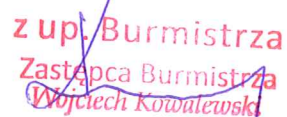 z up. Burmistrza
Zastępca Burmistrza
Wojciech Kowalewski